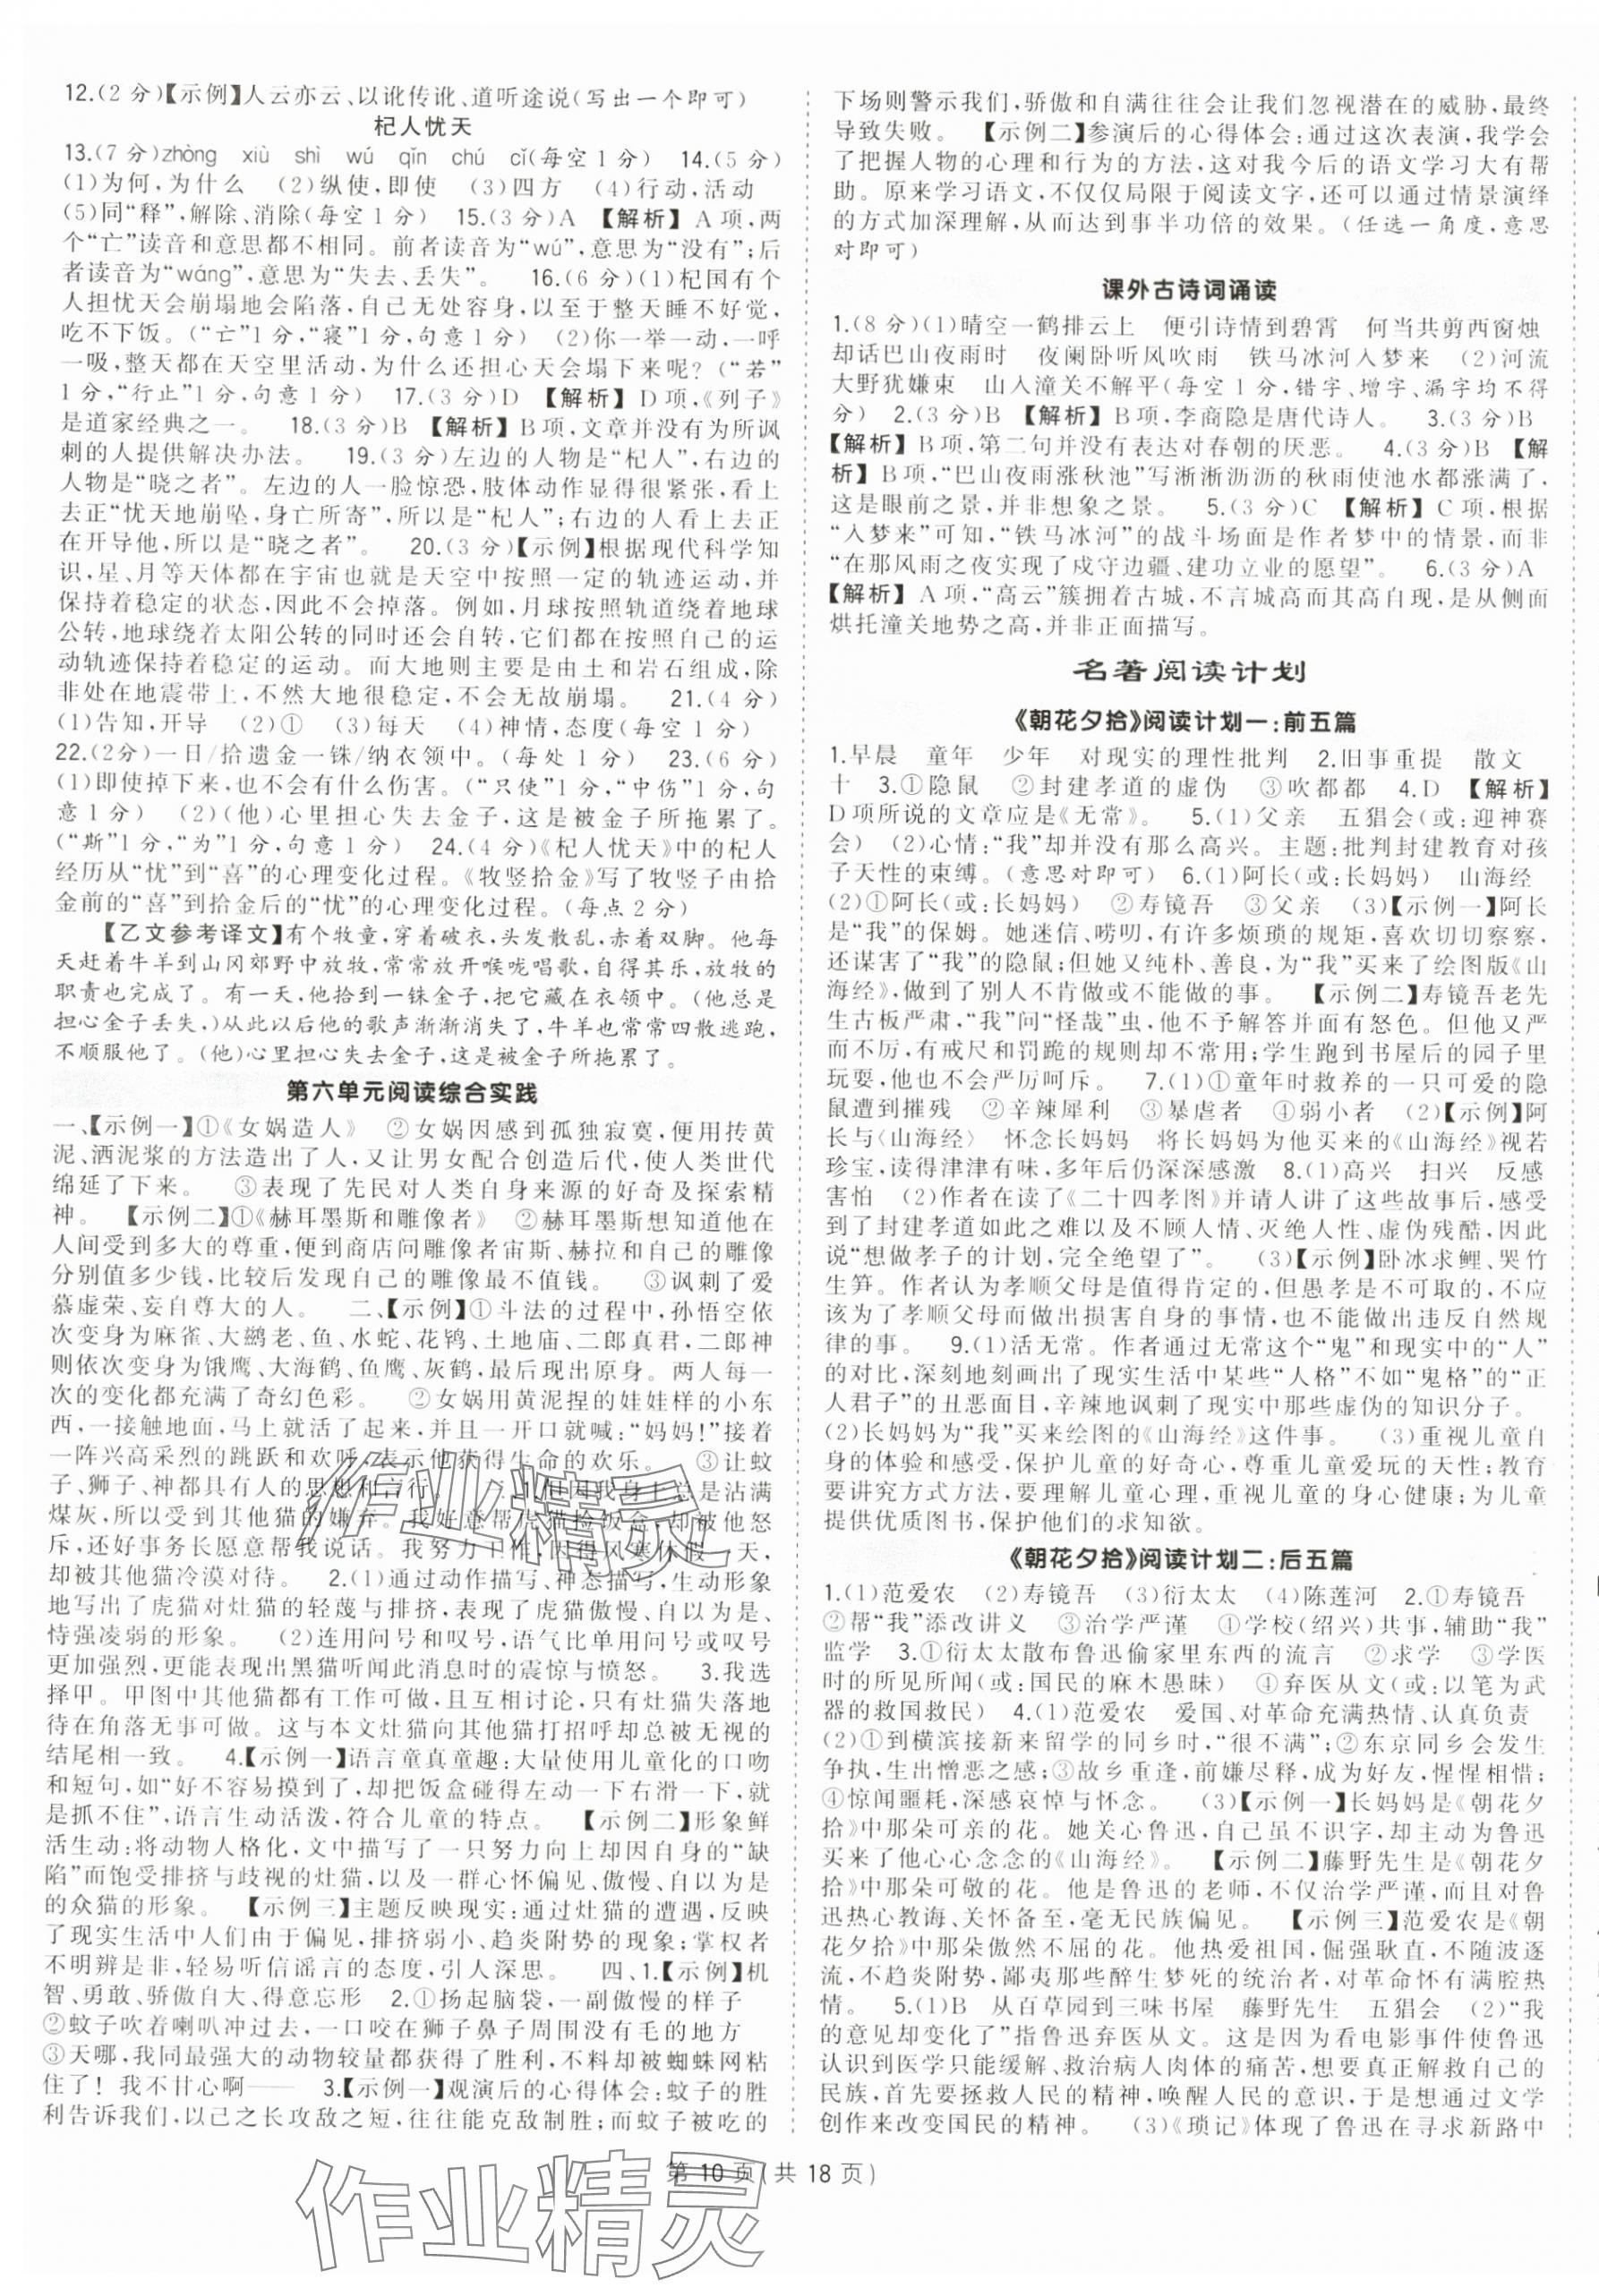 12.(2分)【示例】人云亦云、以讹传讹、道听途说(写出一个即可)
杞人忧天
13.(7分)zhòng xiù shì wú qǐn chú cǐ(每空1分) 14.(5分)
(1)为何,为什么 (2)纵使,即使 (3)四方 (4)行动,活动
(5)同“释”,解除、消除(每空1分) 15.(3分)A 【解析】A项,两
个“亡”读音和意思都不相同。前者读音为“wú”,意思为“没有”;后
者读音为“wáng”,意思为“失去、丢失”。 16.(6分)(1)杞国有个
人担忧天会崩塌地会陷落,自己无处容身,以至于整天睡不好觉,
吃不下饭。(“亡”1分,“寝”1分,句意1分) (2)你一举一动,一呼
一吸,整天都在天空里活动,为什么还担心天会塌下来呢?(“若”
1分,“行止”1分,句意1分) 17.(3分)D 【解析】D项,《列子》
是道家经典之一。 18.(3分)B 【解析】B项,文章并没有为所讽
刺的人提供解决办法。 19.(3分)左边的人物是“杞人”,右边的
人物是“晓之者”。左边的人一脸惊恐,肢体动作显得很紧张,看上
去正“忧天地崩坠,身亡所寄”,所以是“杞人”;右边的人看上去正
在开导他,所以是“晓之者”。 20.(3分)【示例】根据现代科学知
识,星、月等天体都在宇宙也就是天空中按照一定的轨迹运动,并
保持着稳定的状态,因此不会掉落。例如,月球按照轨道绕着地球
公转,地球绕着太阳公转的同时还会自转,它们都在按照自己的运
动轨迹保持着稳定的运动。而大地则主要是由土和岩石组成,除
非处在地震带上,不然大地很稳定,不会无故崩塌。 21.(4分)
(1)告知,开导 (2)① (3)每天 (4)神情,态度(每空1分)
22.(2分)一日/拾遗金一铢/纳衣领中。(每处1分) 23.(6分)
(1)即使掉下来,也不会有什么伤害。(“只使”1分,“中伤”1分,句
意1分) (2)(他)心里担心失去金子,这是被金子所拖累了。
(“斯”1分,“为”1分,句意1分) 24.(4分)《杞人忧天》中的杞人
经历从“忧”到“喜”的心理变化过程。《牧竖拾金》写了牧竖子由拾
金前的“喜”到拾金后的“忧”的心理变化过程。(每点2分)
【乙文参考译文】有个牧童,穿着破衣,头发散乱,赤着双脚。他每
天赶着牛羊到山冈郊野中放牧,常常放开喉咙唱歌,自得其乐,放牧的
职责也完成了。有一天,他拾到一铢金子,把它藏在衣领中。(他总是
担心金子丢失,)从此以后他的歌声渐渐消失了,牛羊也常常四散逃跑,
不顺服他了。(他)心里担心失去金子,这是被金子所拖累了。
第六单元阅读综合实践
一、【示例一】①《女娲造人》 ②女娲因感到孤独寂寞,便用抟黄
泥、洒泥浆的方法造出了人,又让男女配合创造后代,使人类世代
绵延了下来。 ③表现了先民对人类自身来源的好奇及探索精
神。 【示例二】①《赫耳墨斯和雕像者》 ②赫耳墨斯想知道他在
人间受到多大的尊重,便到商店问雕像者宙斯、赫拉和自己的雕像
分别值多少钱,比较后发现自己的雕像最不值钱。 ③讽刺了爱
慕虚荣、妄自尊大的人。 二、【示例】①斗法的过程中,孙悟空依
次变身为麻雀、大鹚老、鱼、水蛇、花鸨、土地庙、二郎真君,二郎神
则依次变身为饿鹰、大海鹤、鱼鹰、灰鹤,最后现出原身。两人每一
次的变化都充满了奇幻色彩。 ②女娲用黄泥捏的娃娃样的小东
西,一接触地面,马上就活了起来,并且一开口就喊:“妈妈!”接着
一阵兴高采烈的跳跃和欢呼,表示他获得生命的欢乐。 ③让蚊
子、狮子、神都具有人的思想和言行。 三、1.但因我身上总是沾满
煤灰,所以受到其他猫的嫌弃。我好意帮虎猫捡饭盒,却被他怒
斥,还好事务长愿意帮我说话。我努力工作,因得风寒休假一天,
却被其他猫冷漠对待。 2.(1)通过动作描写、神态描写,生动形象
地写出了虎猫对灶猫的轻蔑与排挤,表现了虎猫傲慢、自以为是、
恃强凌弱的形象。 (2)连用问号和叹号,语气比单用问号或叹号
更加强烈,更能表现出黑猫听闻此消息时的震惊与愤怒。 3.我选
择甲。甲图中其他猫都有工作可做,且互相讨论,只有灶猫失落地
待在角落无事可做。这与本文灶猫向其他猫打招呼却总被无视的
结尾相一致。 4.【示例一】语言童真童趣:大量使用儿童化的口吻
和短句,如“好不容易摸到了,却把饭盒碰得左动一下右滑一下,就
是抓不住”,语言生动活泼,符合儿童的特点。 【示例二】形象鲜
活生动:将动物人格化,文中描写了一只努力向上却因自身的“缺
陷”而饱受排挤与歧视的灶猫,以及一群心怀偏见、傲慢、自以为是
的众猫的形象。 【示例三】主题反映现实:通过灶猫的遭遇,反映
了现实生活中人们由于偏见,排挤弱小、趋炎附势的现象;掌权者
不明辨是非,轻易听信谣言的态度,引人深思。 四、1.【示例】机
智、勇敢、骄傲自大、得意忘形 2.①扬起脑袋,一副傲慢的样子
②蚊子吹着喇叭冲过去,一口咬在狮子鼻子周围没有毛的地方
③天哪,我同最强大的动物较量都获得了胜利,不料却被蜘蛛网粘
住了!我不甘心啊—— 3.【示例一】观演后的心得体会:蚊子的胜
利告诉我们,以己之长攻敌之短,往往能克敌制胜;而蚊子被吃的
下场则警示我们,骄傲和自满往往会让我们忽视潜在的威胁,最终
导致失败。 【示例二】参演后的心得体会:通过这次表演,我学会
了把握人物的心理和行为的方法,这对我今后的语文学习大有帮
助。原来学习语文,不仅仅局限于阅读文字,还可以通过情景演绎
的方式加深理解,从而达到事半功倍的效果。(任选一角度,意思
对即可)
课外古诗词诵读
1.(8分)(1)晴空一鹤排云上 便引诗情到碧霄 何当共剪西窗烛
却话巴山夜雨时 夜阑卧听风吹雨 铁马冰河入梦来 (2)河流
大野犹嫌束 山入潼关不解平(每空1分,错字、增字、漏字均不得
分) 2.(3分)B 【解析】B项,李商隐是唐代诗人。 3.(3分)B
【解析】B项,第二句并没有表达对春朝的厌恶。 4.(3分)B 【解
析】B项,“巴山夜雨涨秋池”写淅淅沥沥的秋雨使池水都涨满了,
这是眼前之景,并非想象之景。 5.(3分)C 【解析】C项,根据
“入梦来”可知,“铁马冰河”的战斗场面是作者梦中的情景,而非
“在那风雨之夜实现了戍守边疆、建功立业的愿望”。 6.(3分)A
【解析】A项,“高云”簇拥着古城,不言城高而其高自现,是从侧面
烘托潼关地势之高,并非正面描写。
名著阅读计划
《朝花夕拾》阅读计划一:前五篇
1.早晨 童年 少年 对现实的理性批判 2.旧事重提 散文
十 3.①隐鼠 ②封建孝道的虚伪 ③吹都都 4.D 【解析】
D项所说的文章应是《无常》。 5.(1)父亲 五猖会(或:迎神赛
会) (2)心情:“我”却并没有那么高兴。主题:批判封建教育对孩
子天性的束缚。(意思对即可) 6.(1)阿长(或:长妈妈) 山海经
(2)①阿长(或:长妈妈) ②寿镜吾 ③父亲 (3)【示例一】阿长
是“我”的保姆。她迷信、唠叨,有许多烦琐的规矩,喜欢切切察察,
还谋害了“我”的隐鼠;但她又纯朴、善良,为“我”买来了绘图版《山
海经》,做到了别人不肯做或不能做的事。 【示例二】寿镜吾老先
生古板严肃,“我”问“怪哉”虫,他不予解答并面有怒色。但他又严
而不厉,有戒尺和罚跪的规则却不常用;学生跑到书屋后的园子里
玩耍,他也不会严厉呵斥。 7.(1)①童年时救养的一只可爱的隐
鼠遭到摧残 ②辛辣犀利 ③暴虐者 ④弱小者 (2)【示例】阿
长与〈山海经〉 怀念长妈妈 将长妈妈为他买来的《山海经》视若
珍宝,读得津津有味,多年后仍深深感激 8.(1)高兴 扫兴 反感
害怕 (2)作者在读了《二十四孝图》并请人讲了这些故事后,感受
到了封建孝道如此之难以及不顾人情、灭绝人性、虚伪残酷,因此
说“想做孝子的计划,完全绝望了”。 (3)【示例】卧冰求鲤、哭竹
生笋。作者认为孝顺父母是值得肯定的,但愚孝是不可取的,不应
该为了孝顺父母而做出损害自身的事情,也不应做出违反自然规
律的事。 9.(1)活无常。作者通过无常这个“鬼”和现实中的“人”
的对比,深刻地刻画出了现实生活中某些“人格”不如“鬼格”的“正
人君子”的丑恶面目,辛辣地讽刺了现实中那些虚伪的知识分子。
(2)长妈妈为“我”买来绘图的《山海经》这件事。 (3)重视儿童自
身的体验和感受,保护儿童的好奇心,尊重儿童爱玩的天性;教育
要讲究方式方法,要理解儿童心理,重视儿童的身心健康;为儿童
提供优质图书,保护他们的求知欲。
《朝花夕拾》阅读计划二:后五篇
1.(1)范爱农 (2)寿镜吾 (3)衍太太 (4)陈莲河 2.①寿镜吾
②帮“我”添改讲义 ③治学严谨 ④学校(绍兴)共事,辅助“我”
监学 3.①衍太太散布鲁迅偷家里东西的流言 ②求学 ③学医
时的所见所闻(或:国民的麻木愚昧) ④弃医从文(或:以笔为武
器的救国救民) 4.(1)范爱农 爱国、对革命充满热情、认真负责
(2)①到横滨接新来留学的同乡时,“很不满”;②东京同乡会发生
争执,生出憎恶之感;③故乡重逢,前嫌尽释,成为好友,惺惺相惜;
④惊闻噩耗,深感哀悼与怀念。 (3)【示例一】长妈妈是《朝花夕
拾》中那朵可亲的花。她关心鲁迅,自己虽不识字,却主动为鲁迅
买来了他心心念念的《山海经》。 【示例二】藤野先生是《朝花夕
拾》中那朵可敬的花。他是鲁迅的老师,不仅治学严谨,而且对鲁
迅热心教诲、关怀备至,毫无民族偏见。 【示例三】范爱农是《朝
花夕拾》中那朵傲然不屈的花。他热爱祖国,倔强耿直,不随波逐
流,不趋炎附势,鄙夷那些醉生梦死的统治者,对革命怀有满腔热
情。 5.(1)B 从百草园到三味书屋 藤野先生 五猖会 (2)“我
的意见却变化了”指鲁迅弃医从文。这是因为看电影事件使鲁迅
认识到医学只能缓解、救治病人肉体的痛苦,想要真正解救自己的
民族,首先要拯救人民的精神,唤醒人民的意识,于是想通过文学
创作来改变国民的精神。 (3)《琐记》体现了鲁迅在寻求新路中
第10页(共18页)
作业精灵
作业精灵